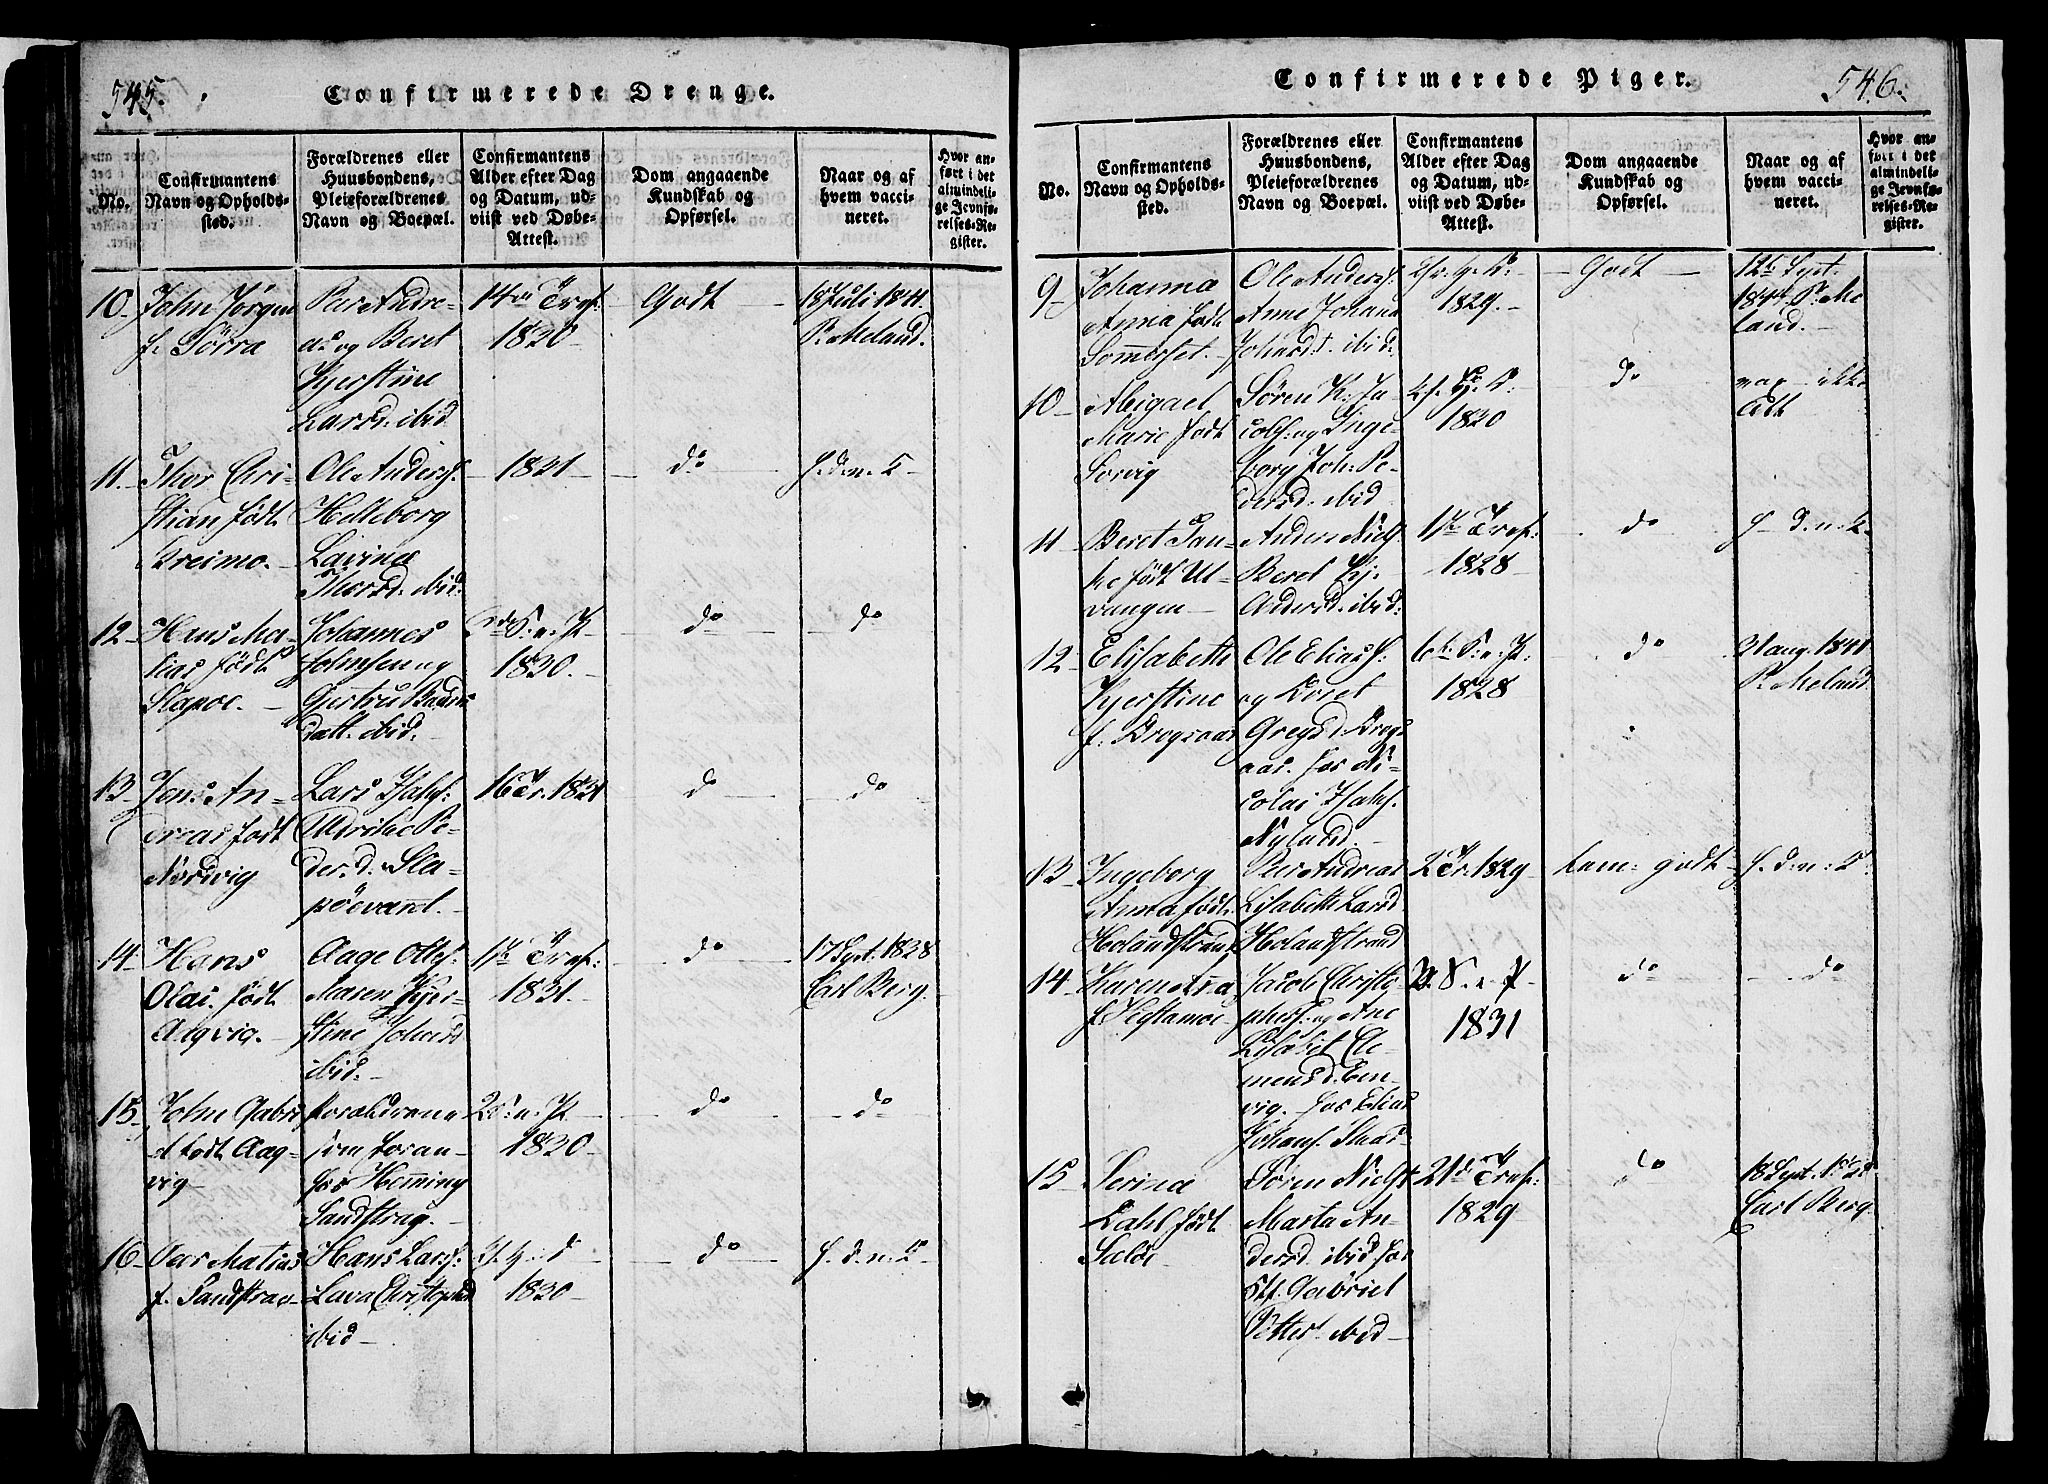 545.
Confirmerede Drenge.
No.
Confirmantens
Navn og Opholds-
sted.
Forældrenes eller
Huusbondens,
Pleieforældrenes
Navn og Boepæl.
Confirmantens
Alder efter Dag
og Datum, ud-
viist ved Døbe-
Attest.
Dom angaaende
Kundskab og
Opførsel.
Naar og af
hvem vacci-
neret.
Hvor an-
ført i det
almindeli-
ge Jevnfø-
relses-Re-
gister.
10
John Jørgen
f. Sörra
Peer Andre-
as og Beret
Kjerstine
Larsd. ibid
1830
Godt
18 Juli 1841.
P. Meland.
11.
Thor Chri-
stian født
Breimo.
Ole Anders.
Helleborg
Lavina
Thorsd. ibid:
1831
do
f. d. n. C
12
Hans Ma-
tias født
Slapøe.
Johannes
Johnsen og
datt. ibid.
1830.
do
do
13
Jens An-
dreas født
Nordvig
Lars Isaks:
Ulrikke Pe-
dersd. Sla-
pöevand.
16 Tr. 1831
do
do
14
Hans
Olai født
Aagvig.
Aage Olles.
Maren Kjer-
stine Johnsd
ibid:
Tref:
1831.
do
17 Sept. 1838
Carl Berg.
15
John Gabri
el født Aag-
vig
Forældrene
som foran
hos Hemming
Sandstrag.
1830
do
do
16
Peer Matias
f. Sandstrag
Hans Lars.
Lava Christophd
ibid
1830
do
f. d. n. C
Confirmerede Piger.
546.
No.
Confirmantens
Navn og Opholds-
sted.
Forældrenes eller
Huusbondens,
Pleieforældrenes
Navn og Boepæl.
Confirmantens
Alder efter Dag
og Datum, ud-
viist ved Døbe-
Attest.
Dom angaaende
Kundskab og
Opførsel.
Naar og af
hvem vacci-
neret.
Hvor an-
ført i det
almindeli-
ge Jevnfø-
relses-Re-
gister.
9
Johanna
Anna født
Sommerset.
Ole Anders.
Anne Johana
Johansd. ibid:
1829.
Godt
12te Sept.
1844 P. Me
land.
10
Abigael
Marie født
Sorvig
Søren K. Ja-
cobs. og Inge-
borg Joh: Pe-
dersd. ibid
1830
do
ikke
Att.
11
Beret Tan-
ke født Ul-
vangen
Anders Niels
Beret Kj.
Andersd. ibid:
Tref:
1828
do
12
Elisabeth
Kjerstine
f. Brogsaas
Ole Elias:
og Beret
Gregsd. Brogs
aas. hos Ni-
colai Isaks.
6te S. n. P.
1828
do
31 aug. 1841
P. Meland.
13
Ingeborg
Anna født
Holandstrand
Peer Andreas
Lisabeth Larsd
Holandstrand
2 Tr. 1829
tem: godt
f. d. n. C.
14
Karen Ana
Jacob Christo-
phers. og Ane
Lisabet Cle-
mensd. Een-
vig. hos Elias
S. n. P
1831
do
do
15
Serina
Dahl født
Sæløe
Søren Niels
Marta An-
dersd ibid hos
Gabriel
Petters. ibid
Tref:
1829
do
18 Sept.
Carl Berg